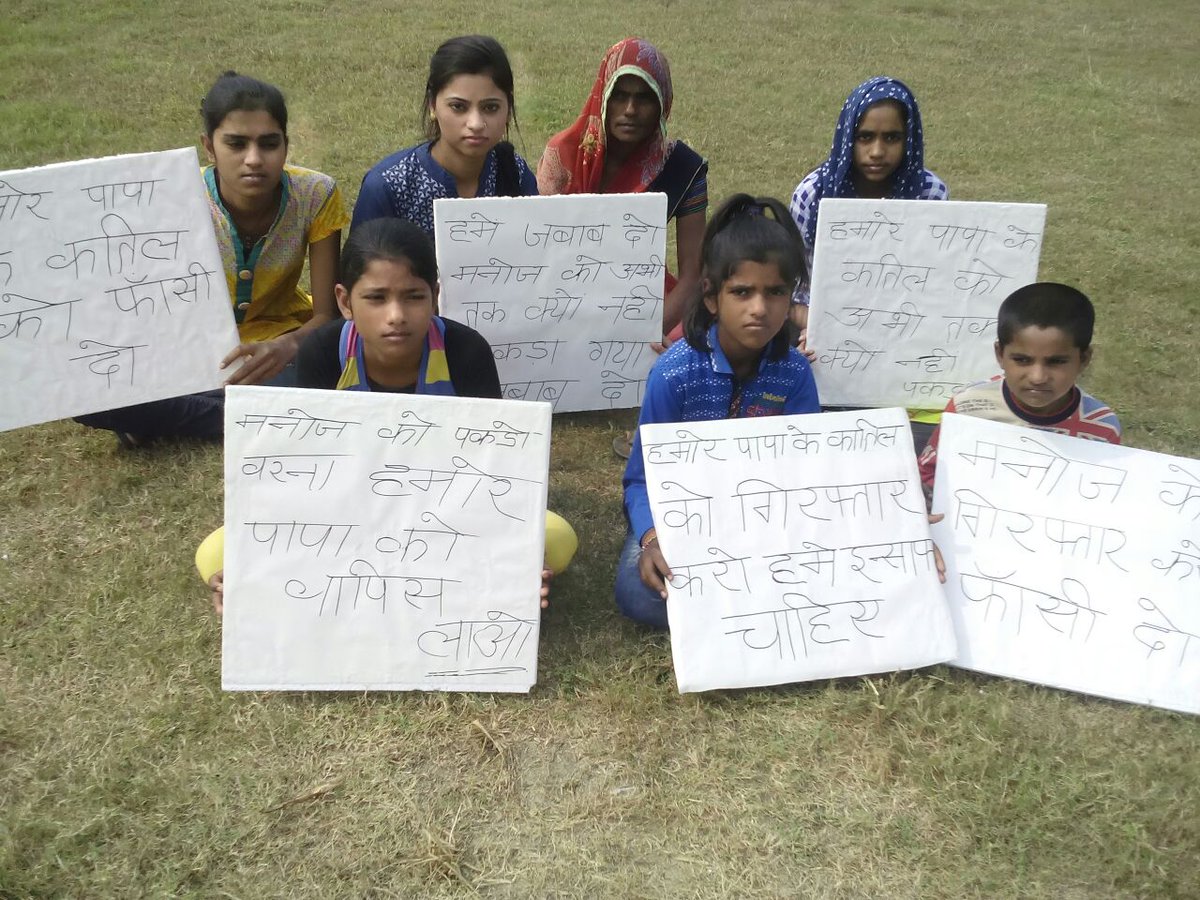 पापा
कातिल
को फाँसी
दो
हमे जबाब दो
मनोज को अभी
तक क्यो नही
गया
जबाब दो
हमारे पापा के
कातिल को
अभी तक
क्यो नही
मनोज को पकडो
वरना हमारे
पापा को
वापिस
लाओ
हमारे पापा के कातिल
को गिरफ्तार
करो हमे इन्साफ
चाहिए
मनोज
गिरफ्तार
फाँसी दो